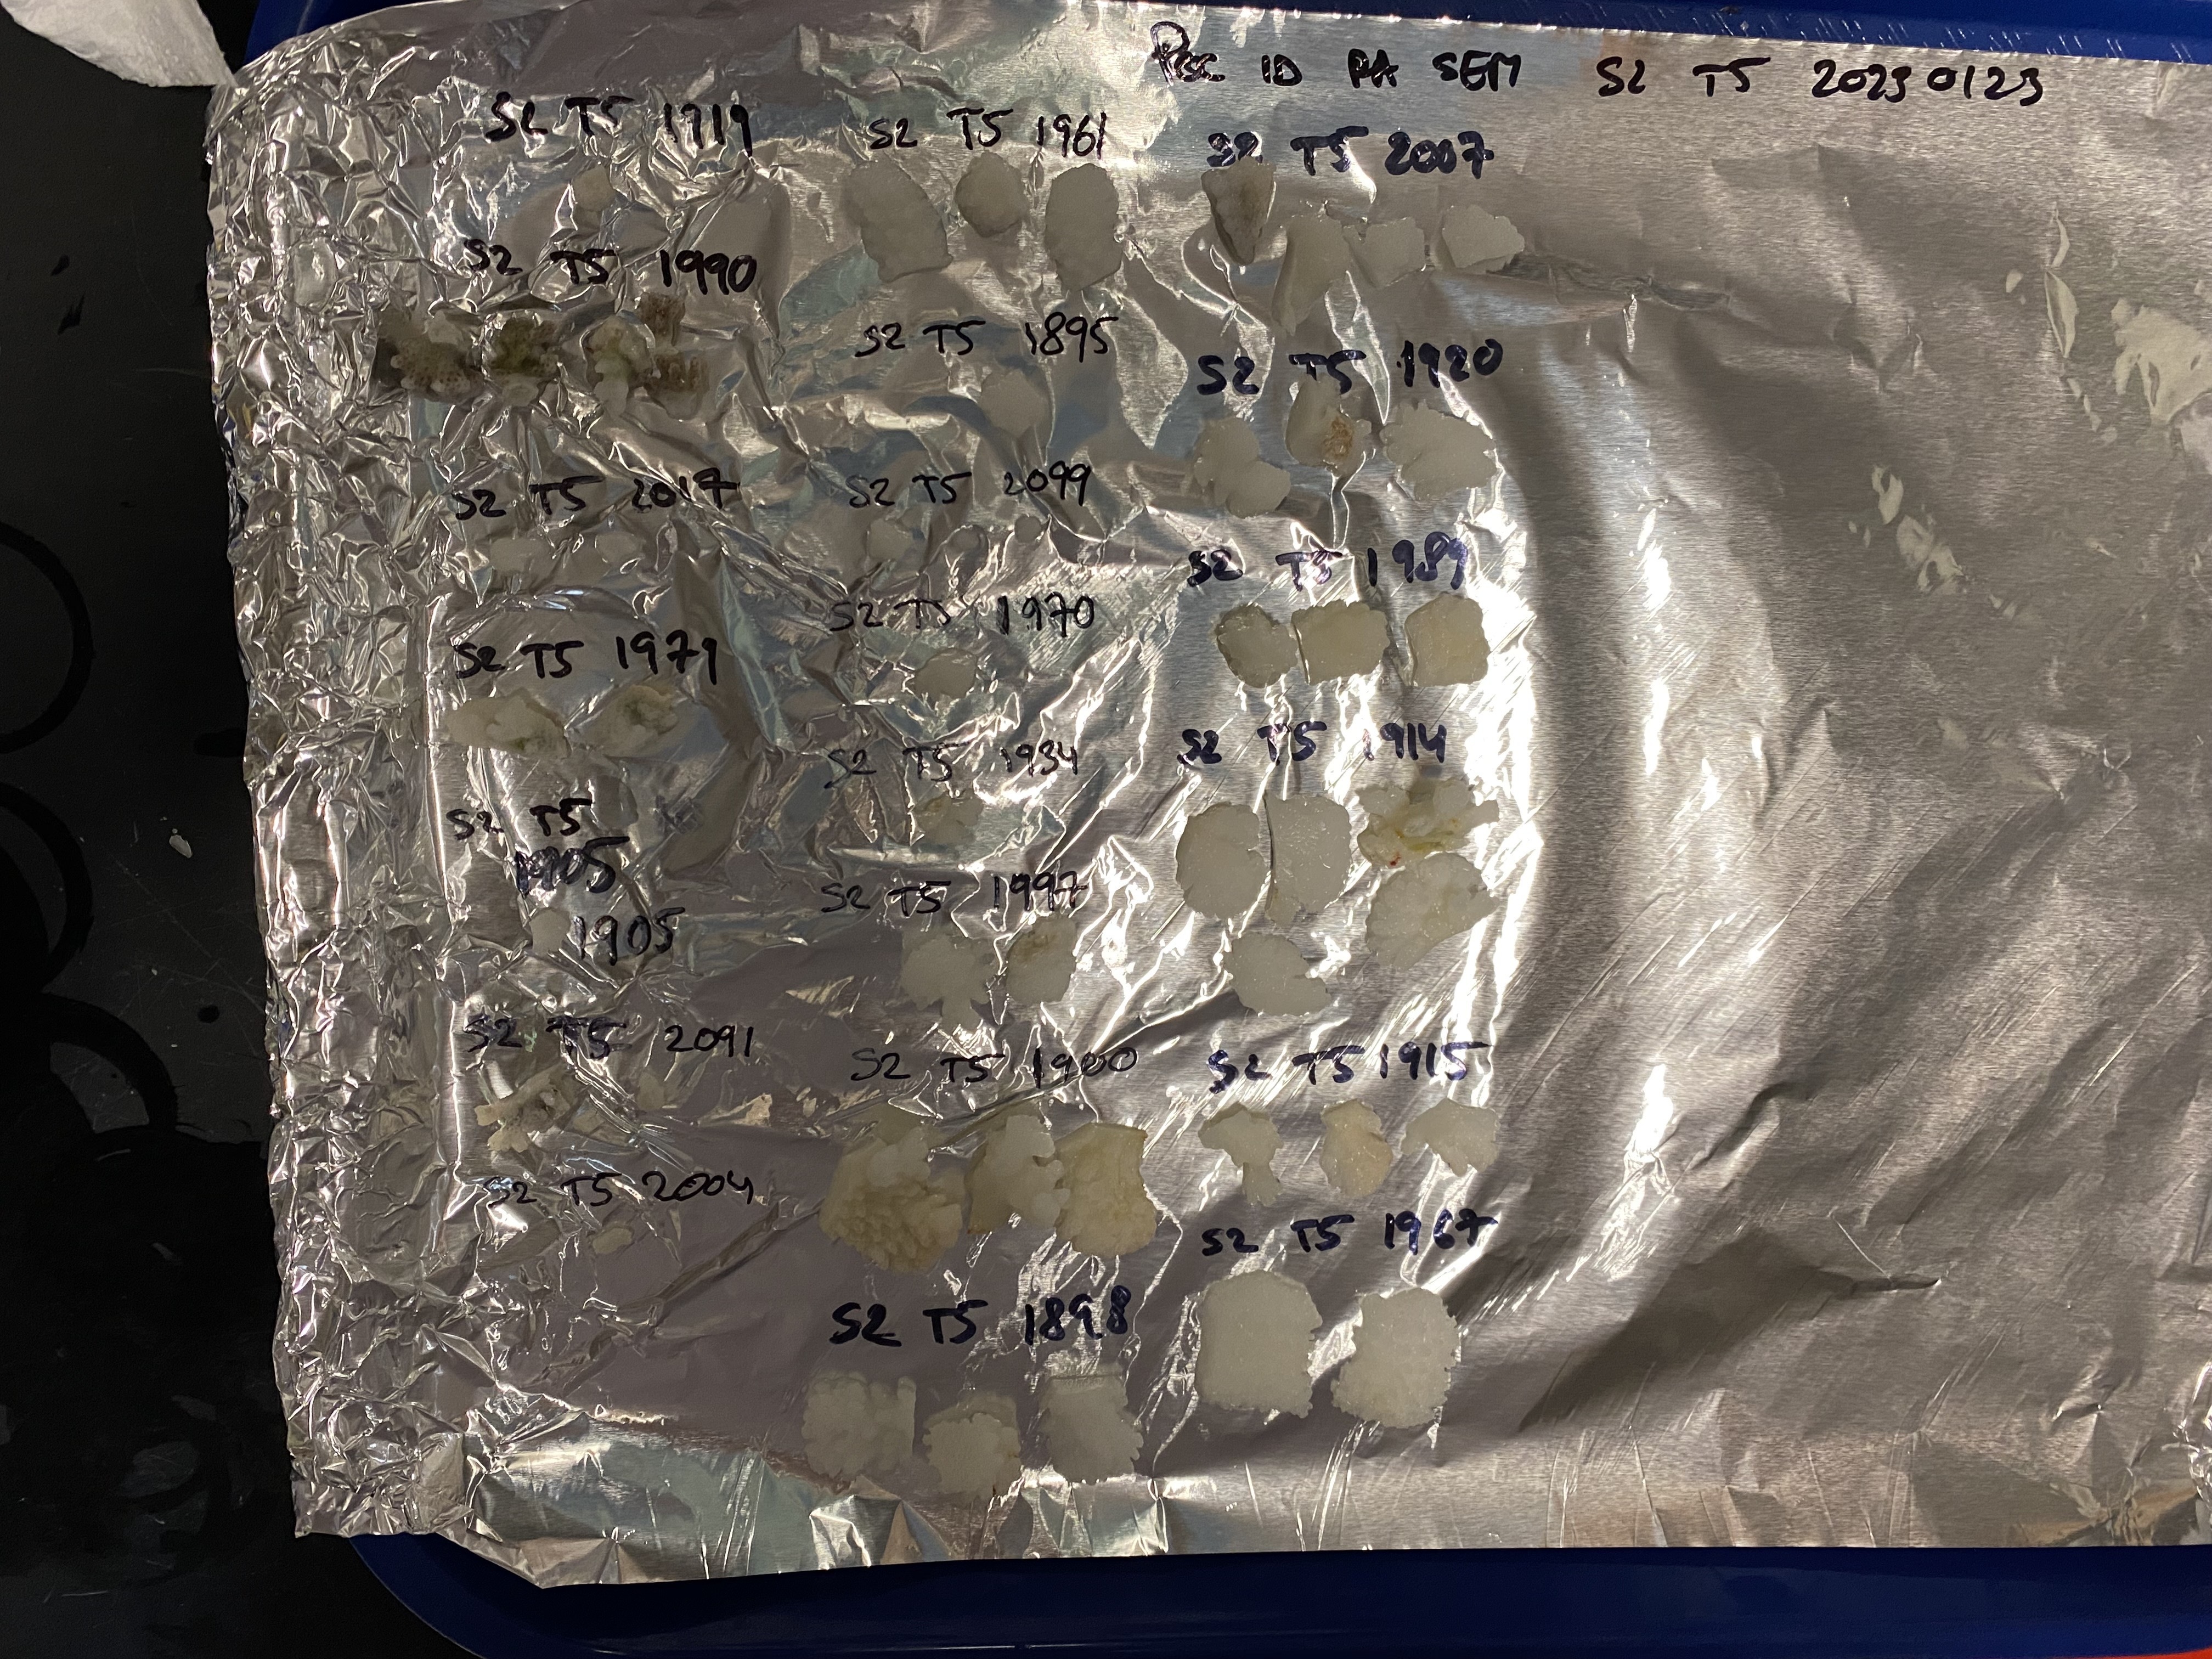 Poc ID PA SEM S2 T5 20230123
S2 T5 1919
S2 T5 1990
S2 T5 2017
S2 T5 1979
S2 T5
1905
1905
S2 T5 2091
S2 T5 2004
S2 T5 1961
S2 T5 1895
S2 T5 2099
S2 T5 1970
S2 T5 1934
S2 T5 1997
S2 T5 1900
S2 T5 1898
S2 T5 2007
S2 T5 1920
S2 T5 1989
S2 T5 1914
S2 T5 1915
S2 T5 1967